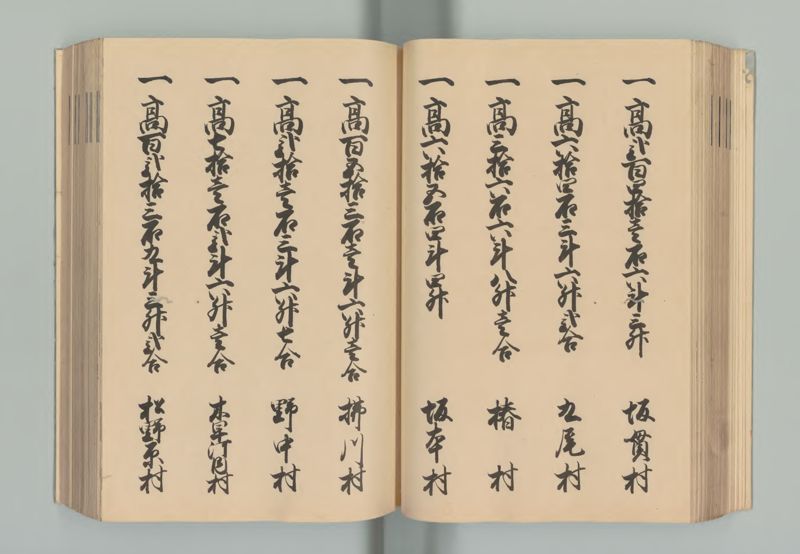 一 高弐百四拾壱石六斗三升 坂貫村
一 高六拾四石三斗六升弐合 丸尾村
一 高三拾六石六斗八升壱合 椿村
一 高六拾五石四斗四升 坂本村
一 高百五拾三石壱斗六升壱合 拂川村
一 高弐拾壱石三斗六升七合 野中村
一 高七拾壱石弐斗六升壱合 木早汀図村
一 高百弐拾三石九斗三升弐合 松野原村